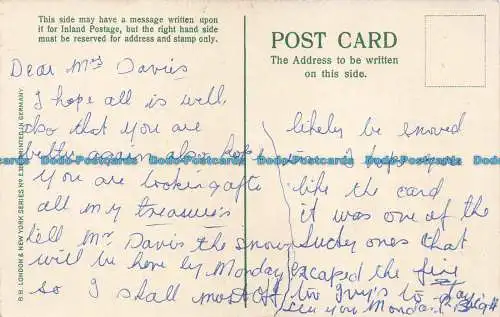 This side may have a message written upon
it for Inland Postage, but the right hand side
must be reserved for address and stamp only.
POST CARD
The Address to be written
on this side.
B.B. LONDON & NEW YORK SERIES No E PRINTED IN GERMANY
Dear Mrs Davies
I hope all is well,
also that you are
better again also hope
you are looking afte
all my treasures
tell Mr Davis the snow
will be here by Monday
so I shall most
likely be snowed
I hope you
like the card
it was one of the
lucky ones that
escaped the fire
two guys to day
see you Monday
Dodo-Postcards Dodo-Postcards Dodo-Postcards Dodo-Postcards Dodo-Postcards
Dodo-Postcards Dodo-Postcards Dodo-Postcards Dodo-Postcards Dodo-Postcards